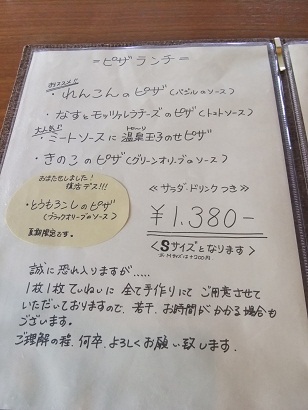 =ピザランチ=
おススメ!
・れんこんのピザ(バジルのソース)
・なすとモッツァレラチーズのピザ(トマトソース)
大人気♪
・ミートソースに温泉玉子のせピザ
・きのこのピザ(グリーンオリーブのソース)
おまたせしました!
復活デス!!!
・とうもろこしのピザ
(ブラックオリーブのソース)
夏期限定です。
≪サラダ・ドリンクつき≫
¥1.380-
<Sサイズとなります>
誠に恐れ入りますが.....
1枚1枚ていねいに全て手作りにてご用意させて
いただいておりますので、若干、お時間がかかる場合も
ございます。
ご理解の程、何卒、よろしくお願い致します。